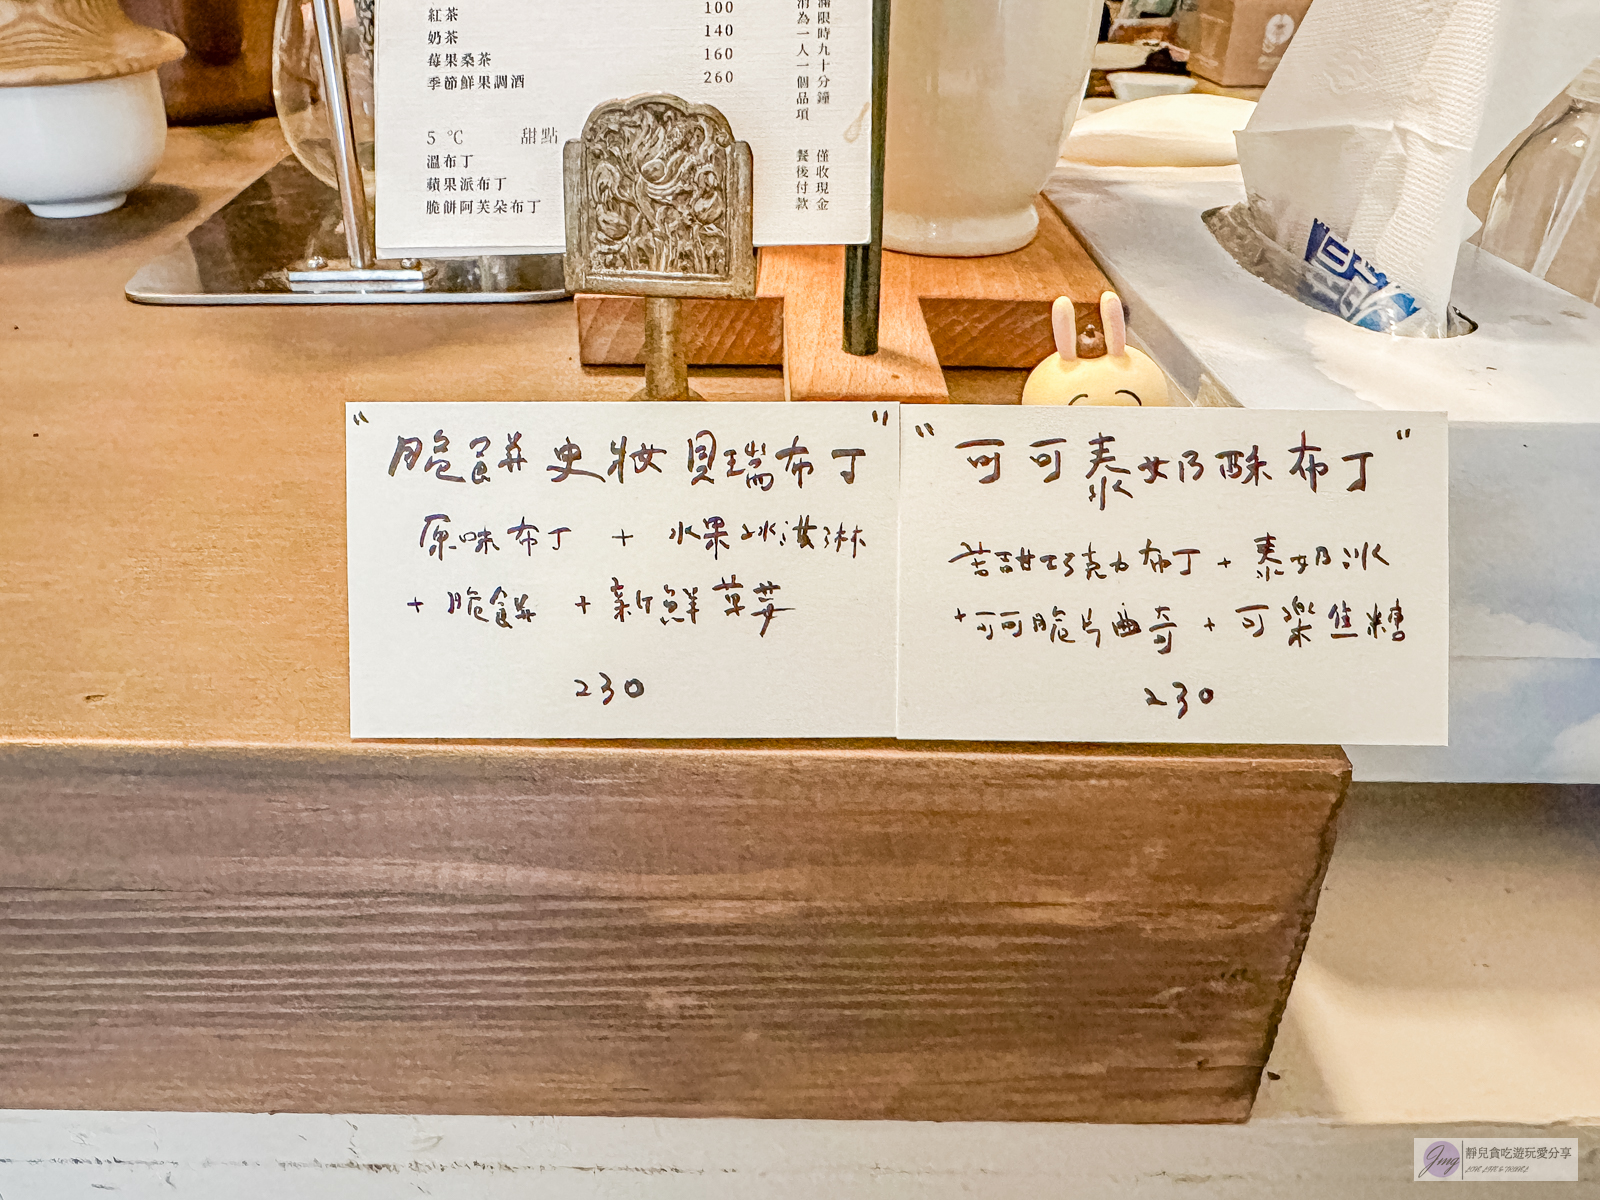 紅茶 100
奶茶 140
莓果桑茶 160
季節鮮果調酒 260
5 ℃ 甜點
溫布丁
蘋果派布丁
脆餅阿芙朵布丁
滿限時九十分鐘
消為一人一個品項
僅收現金
餐後付款
"脆餅史妝貝瑞布丁"
原味布丁 + 水果冰淇淋
+ 脆餅 + 新鮮草莓
230
"可可泰奶酥布丁"
苦甜巧克力布丁 + 泰奶冰
+可可脆片曲奇 + 可樂焦糖
230
靜兒貪吃遊玩愛分享
Jing